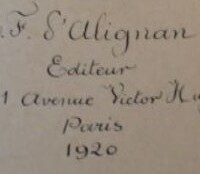 . F. d'Alignan
Editeur
1 Avenue Victor Hu
Paris
1920